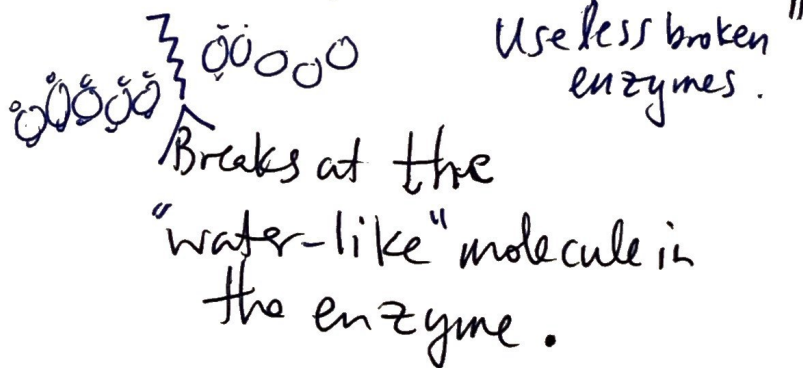 Useless broken"
enzymes.
Breaks at the
"water-like" molecule in
the enzyme.